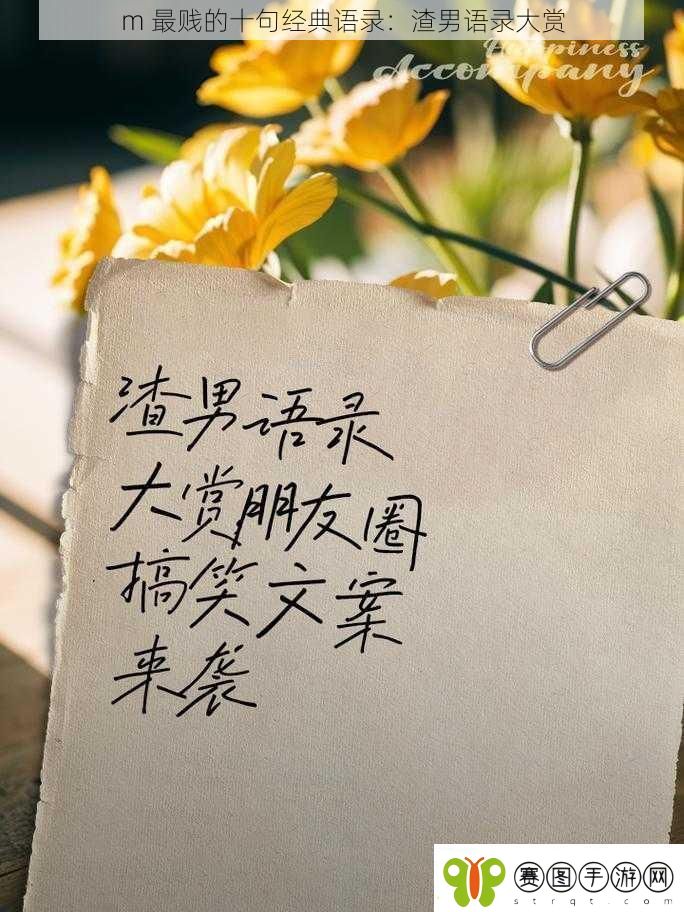 m 最贱的十句经典语录：渣男语录大赏
Happiness
Accompany
渣男语录
大赏朋友圈
搞笑文案
来袭
赛图手游网
strqt.com